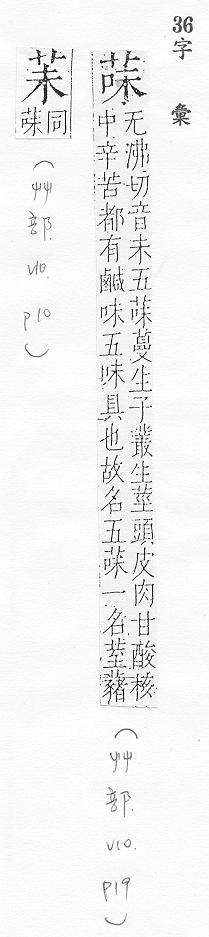 36
字彙
菋
无沸切音未五菋蔓生子叢生莖頭皮肉甘酸核
中辛苦都有鹹味五味具也故名五菋一名荎藸
(艸部. v10. p19)
茉
菋同
(艸部. v10. p10)